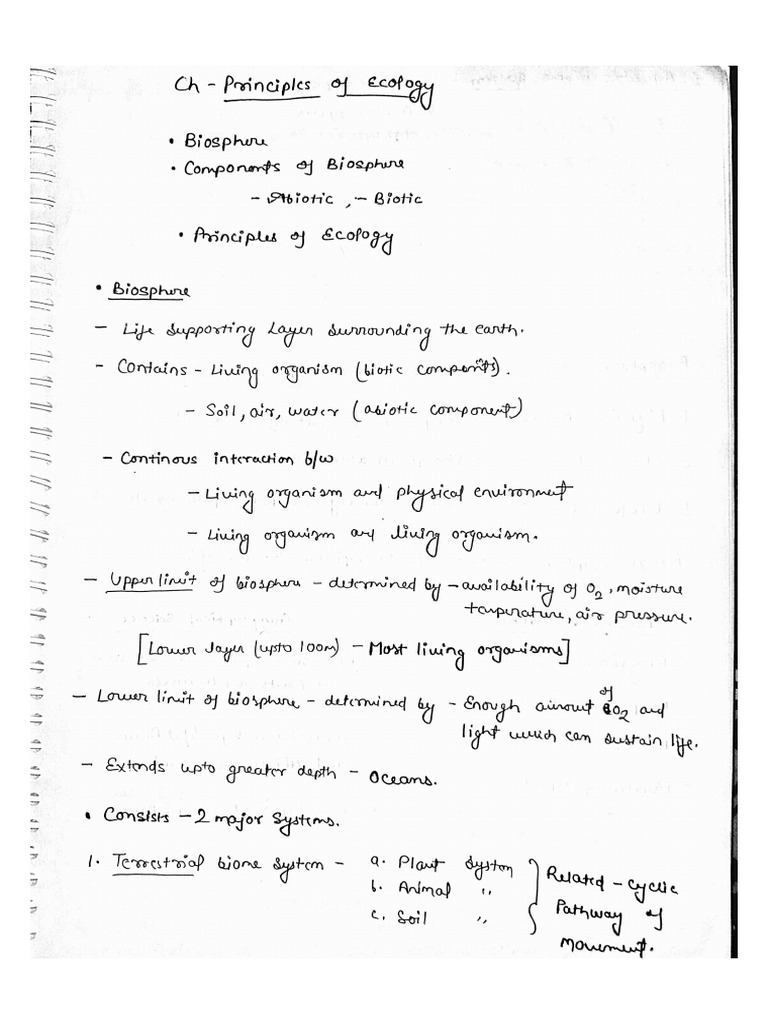 Ch - Principles of Ecology
• Biosphere
• Components of Biosphere
- Abiotic, - Biotic
• Principles of Ecology
• Biosphere
- Life supporting Layer surrounding the earth.
- Contains - Living organism (biotic components).
- Soil, air, water (abiotic component)
- Continous interaction b/w
- Living organism and physical environment
- Living organism and living organism.
- Upper limit of biosphere - determined by - availability of O2, moisture
temperature, air pressure.
[Lower layer (upto 100m) - Most living organisms]
- Lower limit of biosphere - determined by - Enough amount of O2 and
light which can sustain life.
- Extends upto greater depth - Oceans.
• Consists - 2 major Systems.
1. Terrestrial biome system - a. Plant System
b. Animal "
c. Soil "
Related - cyclic
Pathway of
Movement.